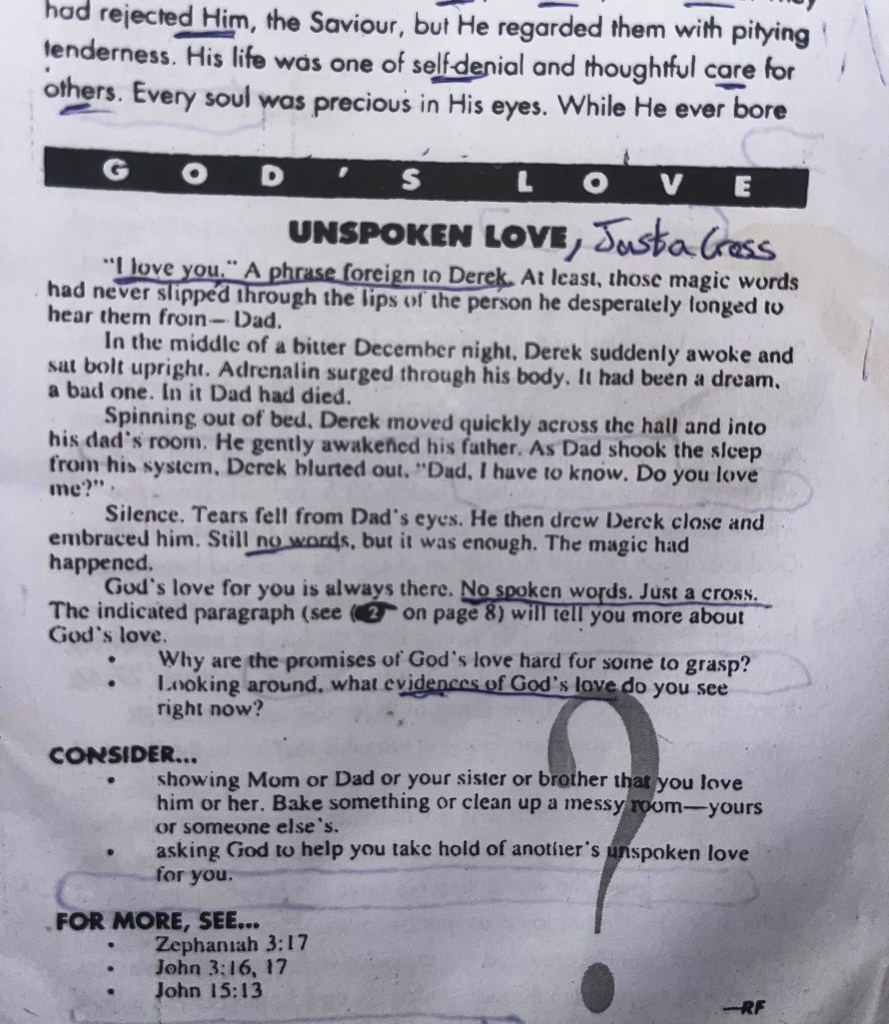 had rejected Him, the Saviour, but He regarded them with pitying
tenderness. His life was one of self-denial and thoughtful care for
others. Every soul was precious in His eyes. While He ever bore
GOD'S LOVE
UNSPOKEN LOVE, Just a Cross
"I love you." A phrase foreign to Derek. At least, those magic words
had never slipped through the lips of the person he desperately longed to
hear them from— Dad.
In the middle of a bitter December night, Derek suddenly awoke and
sat bolt upright. Adrenalin surged through his body. It had been a dream,
a bad one. In it Dad had died.
Spinning out of bed, Derek moved quickly across the hall and into
his dad's room. He gently awakened his father. As Dad shook the sleep
from his system, Derek blurted out, "Dad, I have to know. Do you love
me?"
Silence. Tears fell from Dad's eyes. He then drew Derek close and
embraced him. Still no words, but it was enough. The magic had
happened.
God's love for you is always there. No spoken words. Just a cross.
The indicated paragraph (see 2 on page 8) will tell you more about
God's love.
• Why are the promises of God's love hard for some to grasp?
• Looking around, what evidences of God's love do you see
right now?
CONSIDER...
• showing Mom or Dad or your sister or brother that you love
him or her. Bake something or clean up a messy room—yours
or someone else's.
• asking God to help you take hold of another's unspoken love
for you.
FOR MORE, SEE...
• Zephaniah 3:17
• John 3:16, 17
• John 15:13
?
—RF